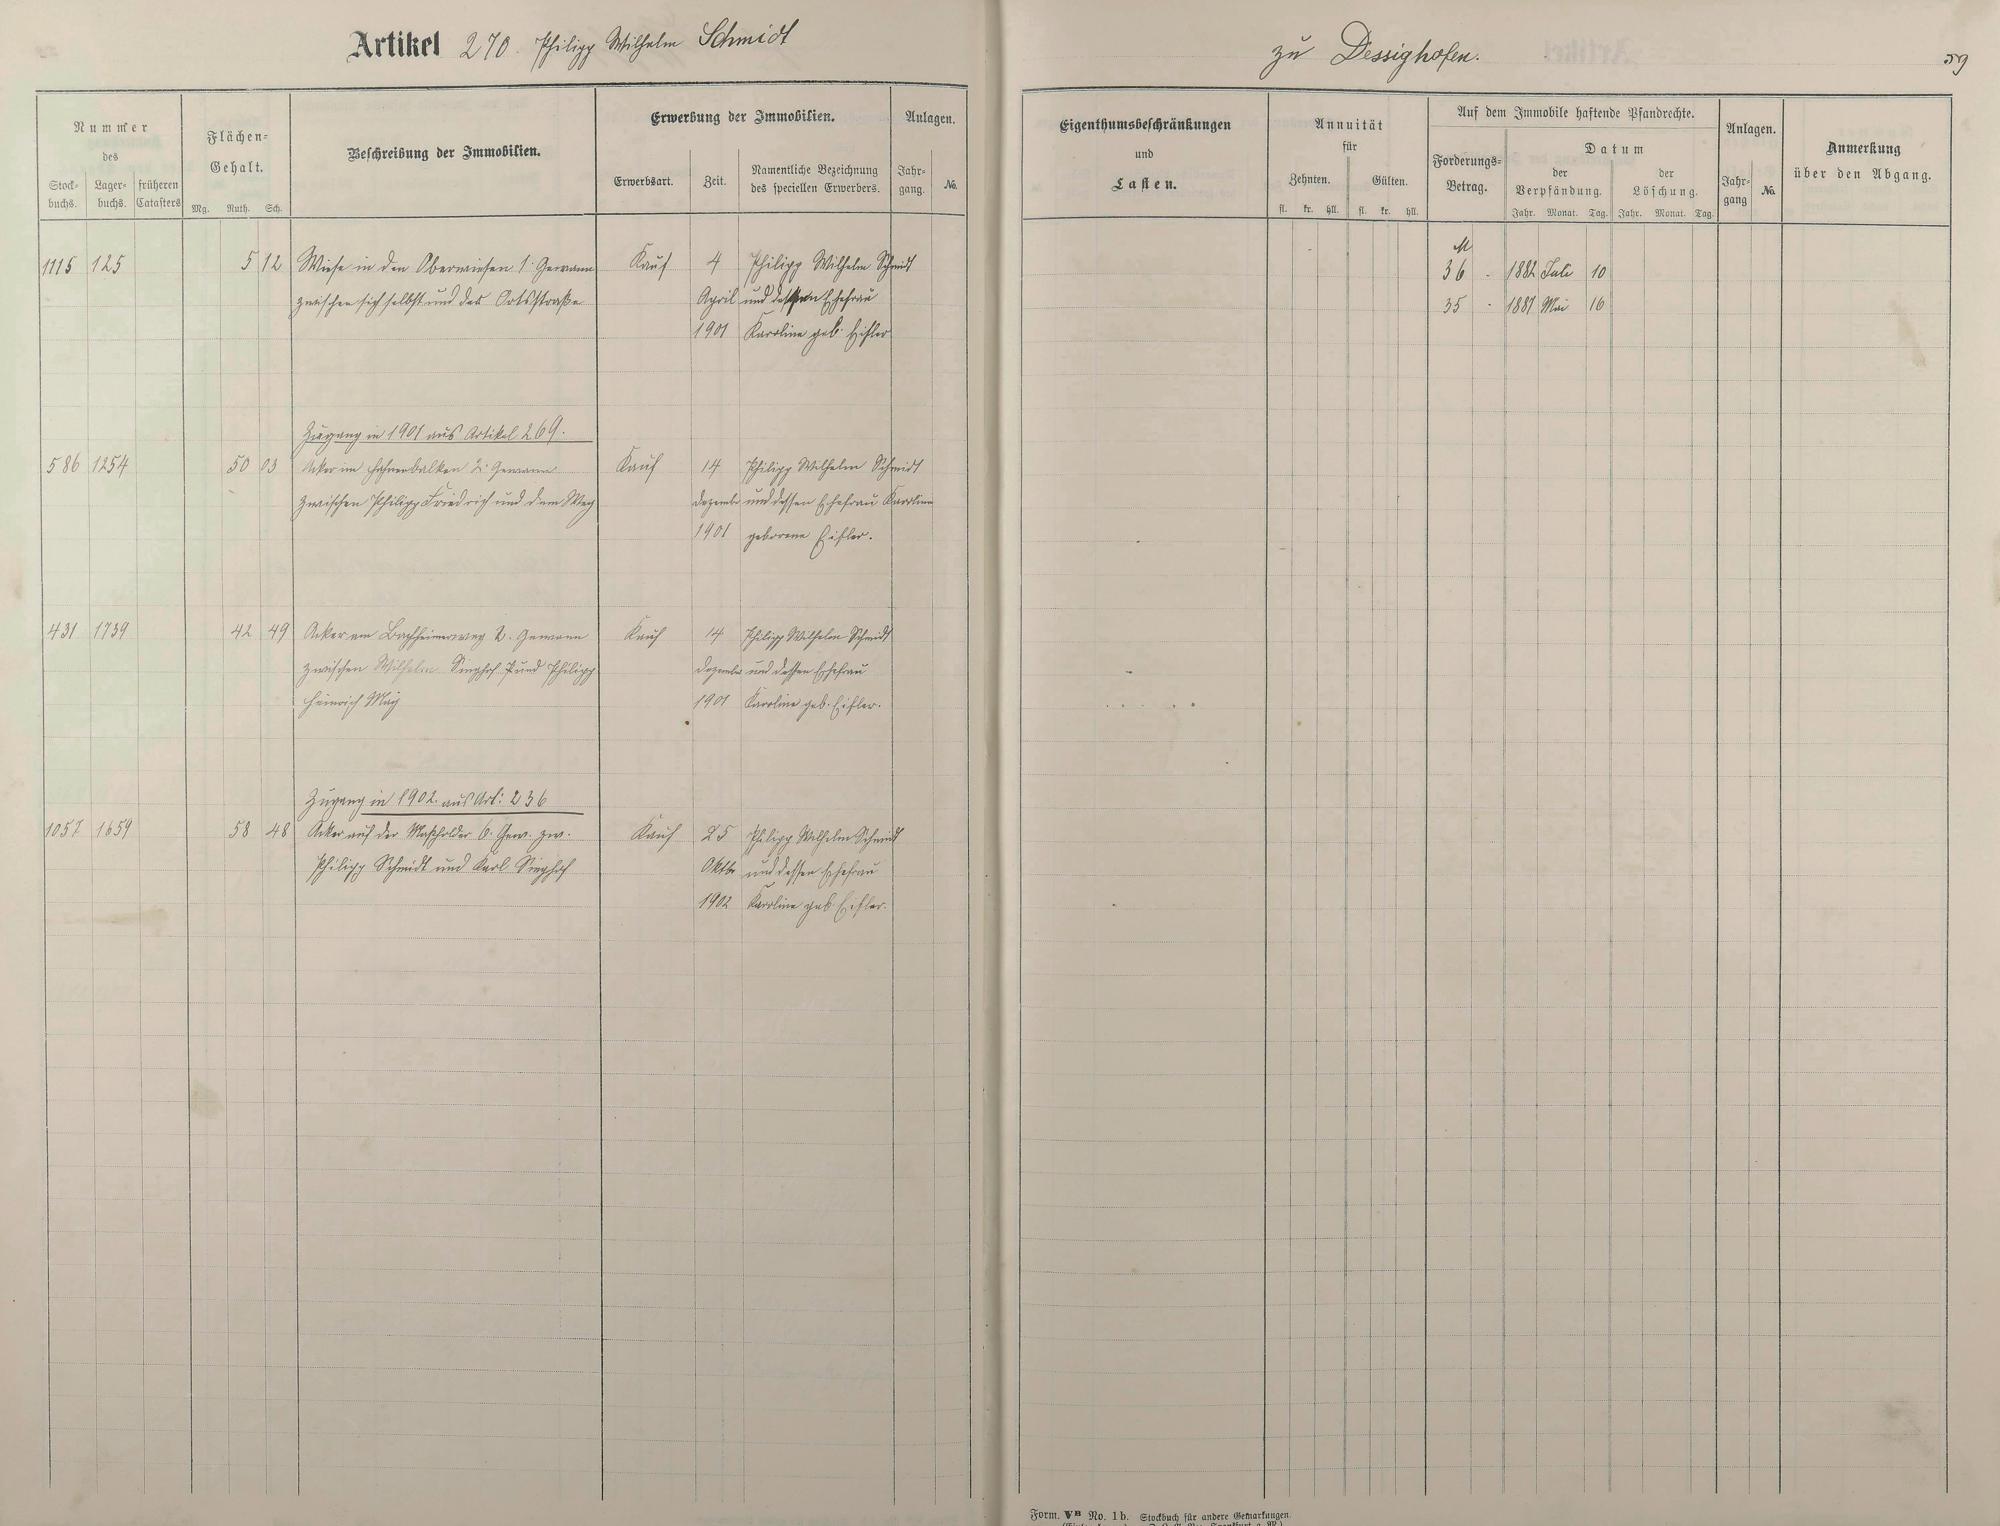 Artikel 270. Philipp Wilhelm Schmidt
zu Dessighofen.
59
Nummer
des
Stock-
buchs.
Lager-
buchs.
früheren
Catasters
Flächen-
Gehalt.
Mg. Ruth. Sch.
Beschreibung der Immobilien.
Erwerbung der Immobilien.
Erwerbsart.
Zeit.
Namentliche Bezeichnung
des speciellen Erwerbers.
Anlagen.
Jahr-
gang.
No.
Eigenthumsbeschränkungen
und
Lasten.
Annuität
für
Zehnten. Gülten.
fl. kr. hll. fl. kr. hll.
Auf dem Immobile haftende Pfandrechte.
Forderungs-
Betrag.
Datum
der
Verpfändung.
der
Löschung.
Jahr. Monat. Tag. Jahr. Monat. Tag.
Anlagen.
Jahr-
gang
No.
Anmerkung
über den Abgang.
M
1115 125 5 12 Wiese in den Oberwiesen 1. Gewann Kauf 4 Philipp Wilhelm Schmidt 36 - 1882 Juli 10
zwischen sich selbst und der Ortsstraße April und dessen Ehefrau 35 - 1887 Mai 16
1901 Karoline geb. Eisler
Zugang in 1901 aus Artikel 269.
586 1254 50 03 Acker im Hahnenbalken 2. Gewann Kauf 14 Philipp Wilhelm Schmidt
zwischen Philipp Friedrich und dem Weg Dezember und dessen Ehefrau Karoline
1901 geborene Eisler.
431 1739 42 49 Acker am Bachheimerweg 2. Gewann Kauf 14 Philipp Wilhelm Schmidt
zwischen Wilhelm Singhof und Philipp Dezember und dessen Ehefrau
Heinrich May 1901 Karoline geb. Eisler.
Zugang in 1902. aus Art: 236
1057 1659 58 48 Acker auf der Maßholder 6. Gew. zw. Kauf 25 Philipp Wilhelm Schmidt
Philipp Schmidt und Karl Singhof Oktbr und dessen Ehefrau
1902 Karoline geb. Eisler.
Form. VB No. 1b. Stockbuch für andere Gemarkungen.